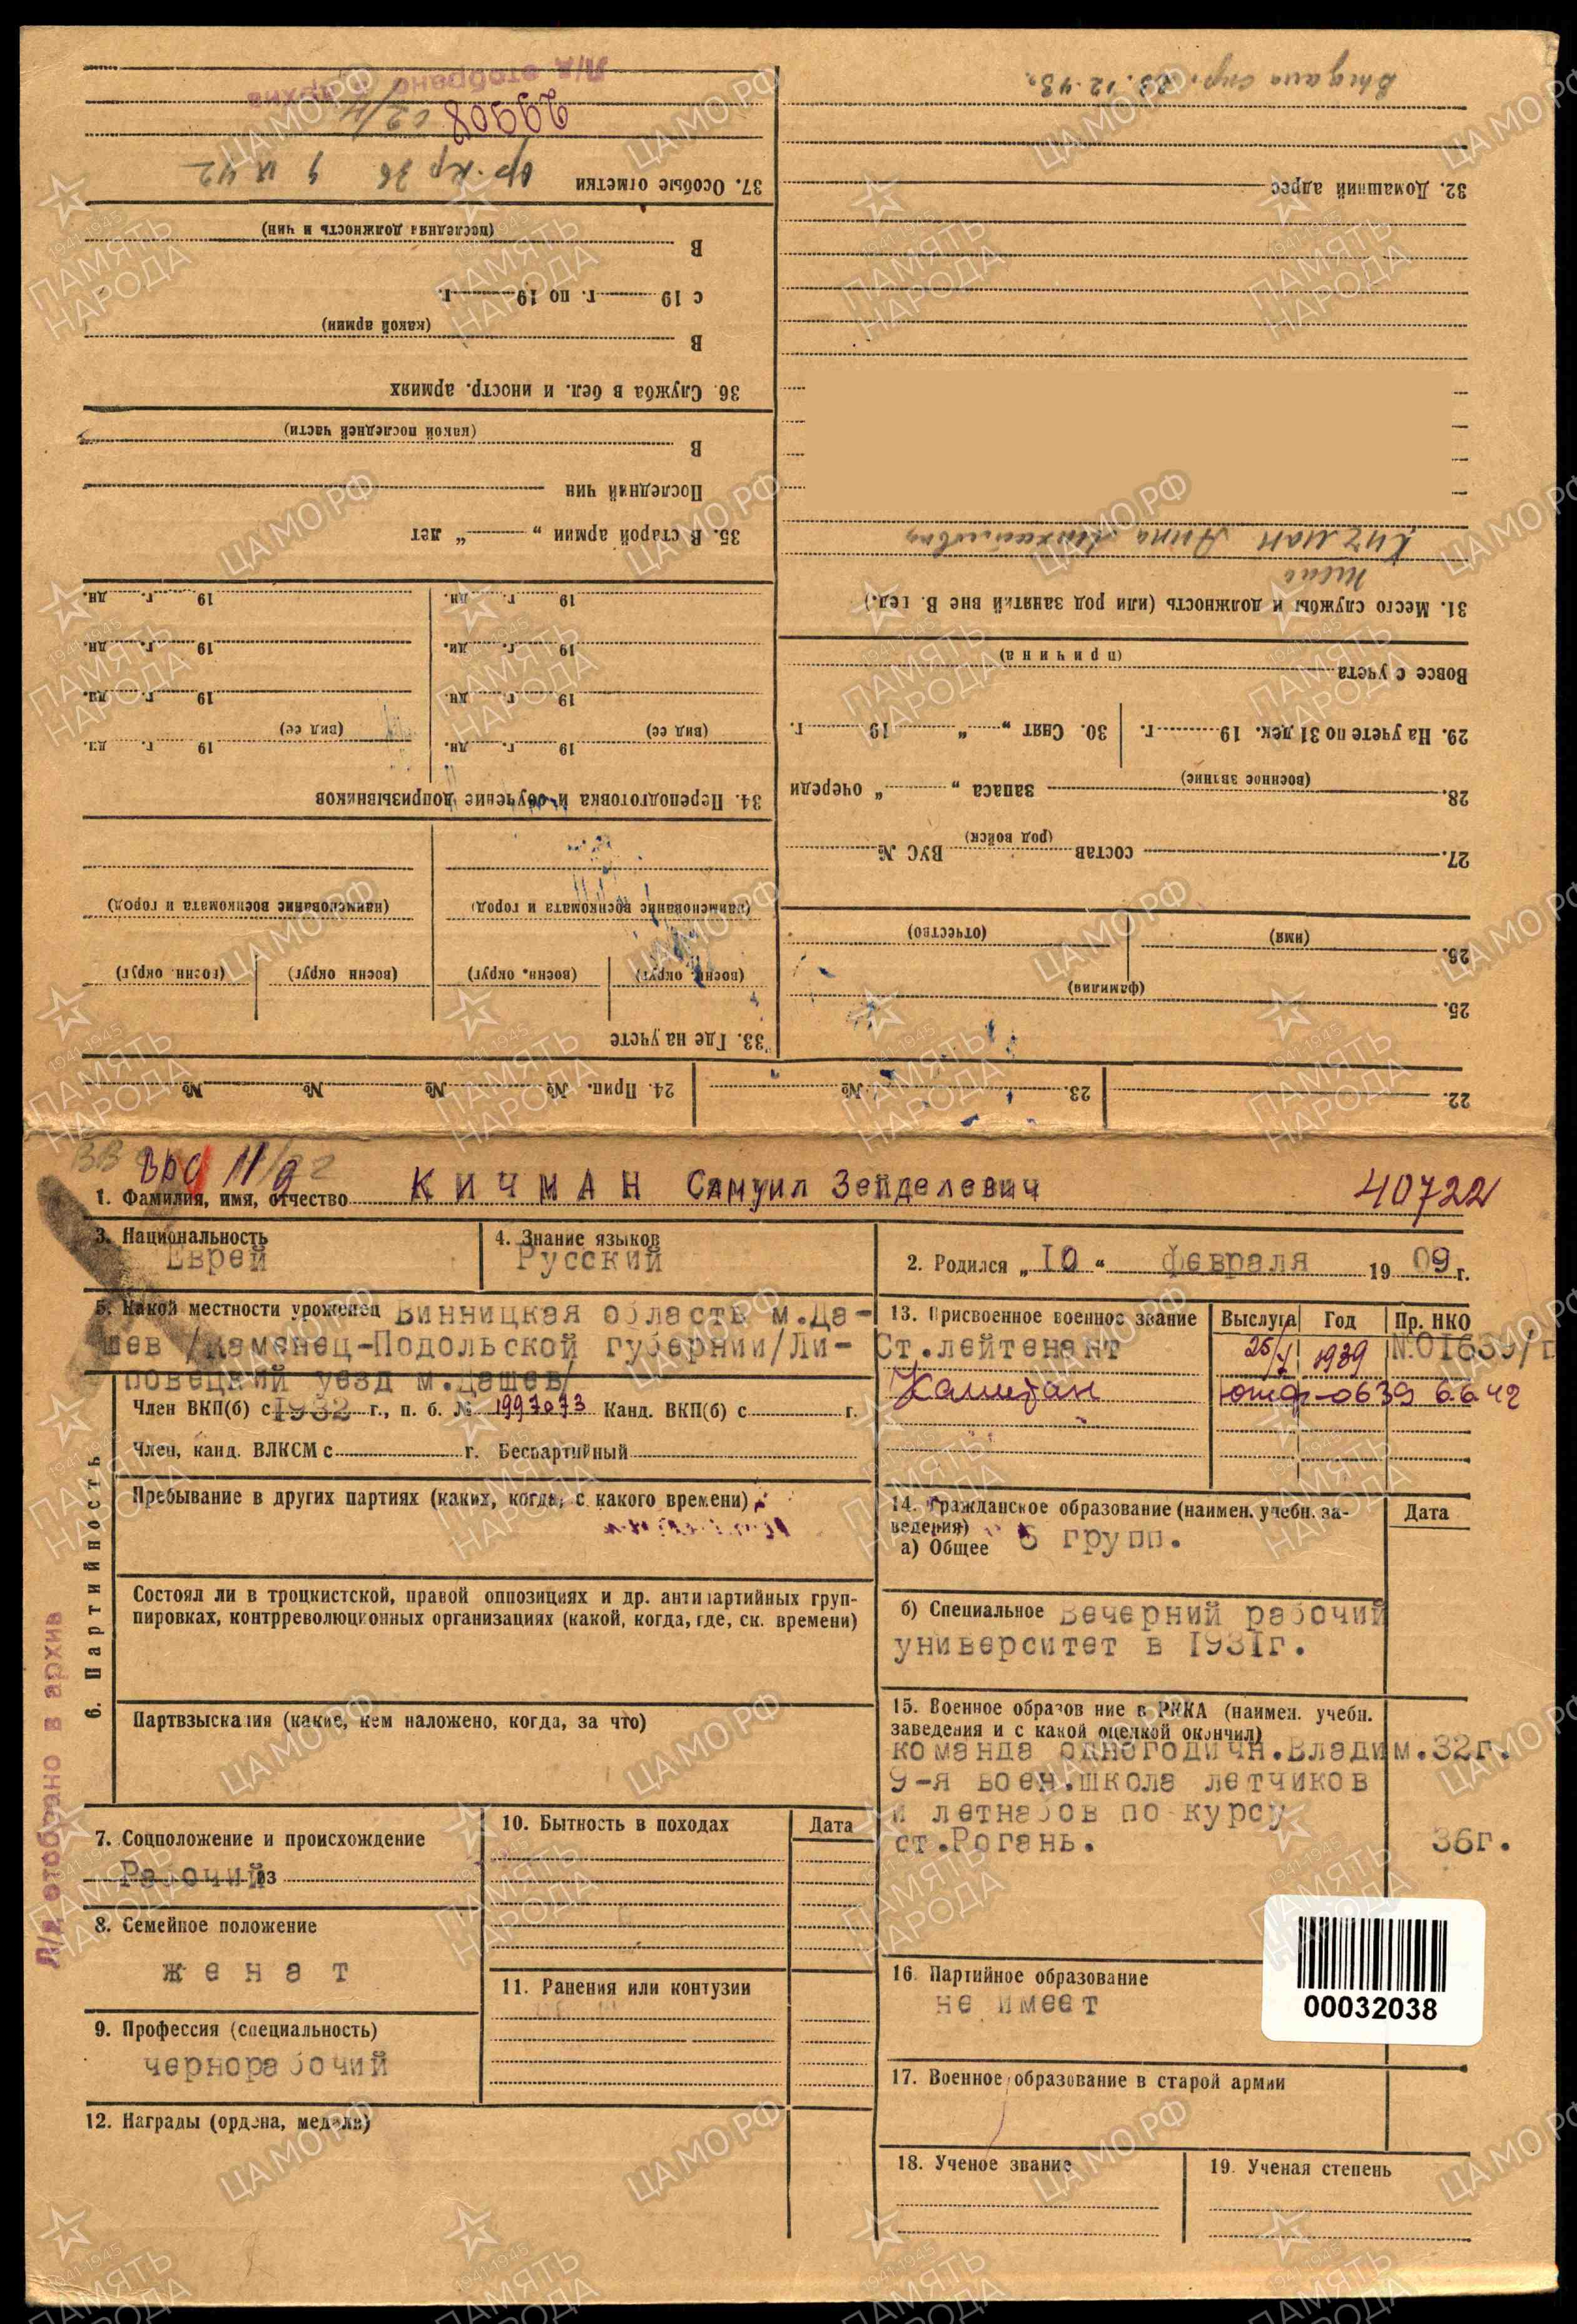 22.
23. №
24. Прип. № № № №
25.
(фамилия)
26.
(имя)
(отчество)
27. состав ВУС №
(род войск)
28. запаса „ “ очереди
(военное звание)
29. На учете по 31 дек. 19 г.
30. Снят „ “ 19 г.
Вовсе с учета
(причина)
31. Место службы и должность (или род занятий вне В. вед.)
жена
Кичман Анна
32. Домашний адрес
Выдана спр. 23.12.43.
33. Где на учете
(военн. округ) (военн. округ) (военн. округ) (военн. округ)
(наименование военкомата и город) (наименование военкомата и город)
34. Переподготовка и обучение допризывников
19 г. дн. 19 г. дн.
(вид ее) (вид ее)
19 г. дн. 19 г. дн.
19 г. дн. 19 г. дн.
19 г. дн. 19 г. дн.
35. В старой армии „ “ лет
Последний чин
В
(какой последней части)
36. Служба в бел. и иностр. армиях
В
(какой армии)
с 19 г. по 19 г.
В
(последняя должность и чин)
37. Особые отметки
299508
Л/д отобрано в архив
40722
1. Фамилия, имя, отчество КИЧМАН Самуил Зейделевич
3. Национальность
Еврей
4. Знание языков
Русский
2. Родился „10“ февраля 1909 г.
5. Какой местности уроженец Винницкая область м.Да-
шев /Каменец-Подольской губернии/Ли-
повецкий уезд м.Дашев/
6. Партийность
Член ВКП(б) с 1932 г., п. б. № 1997073 Канд. ВКП(б) с г.
Член, канд. ВЛКСМ с г. Беспартийный
Пребывание в других партиях (каких, когда, с какого времени)
Состоял ли в троцкистской, правой оппозициях и др. антипартийных груп-
пировках, контрреволюционных организациях (какой, когда, где, ск. времени)
Партвзыскания (какие, кем наложено, когда, за что)
7. Соцположение и происхождение
Рабочий из
8. Семейное положение
женат
9. Профессия (специальность)
чернорабочий
10. Бытность в походах Дата
11. Ранения или контузии
12. Награды (ордена, медали)
13. Присвоенное военное звание Выслуга Год Пр. НКО
Ст.лейтенант 1939 №01639/п
Капитан 0639 6.6.42
14. Гражданское образование (наимен. учебн. за-
ведения) Дата
а) Общее 5 групп.
б) Специальное Вечерний рабочий
университет в 1931г.
15. Военное образование в РККА (наимен. учебн.
заведения и с какой оценкой окончил)
команда одногодичн.Владим.32г.
9-я воен.школа летчиков
и летнабов по курсу
ст.Рогань. 36г.
16. Партийное образование
не имеет
17. Военное образование в старой армии
18. Ученое звание
19. Ученая степень
Л/д отобрано в архив
00032038
ЦАМО.РФ
1941-1945
ПАМЯТЬ
НАРОДА